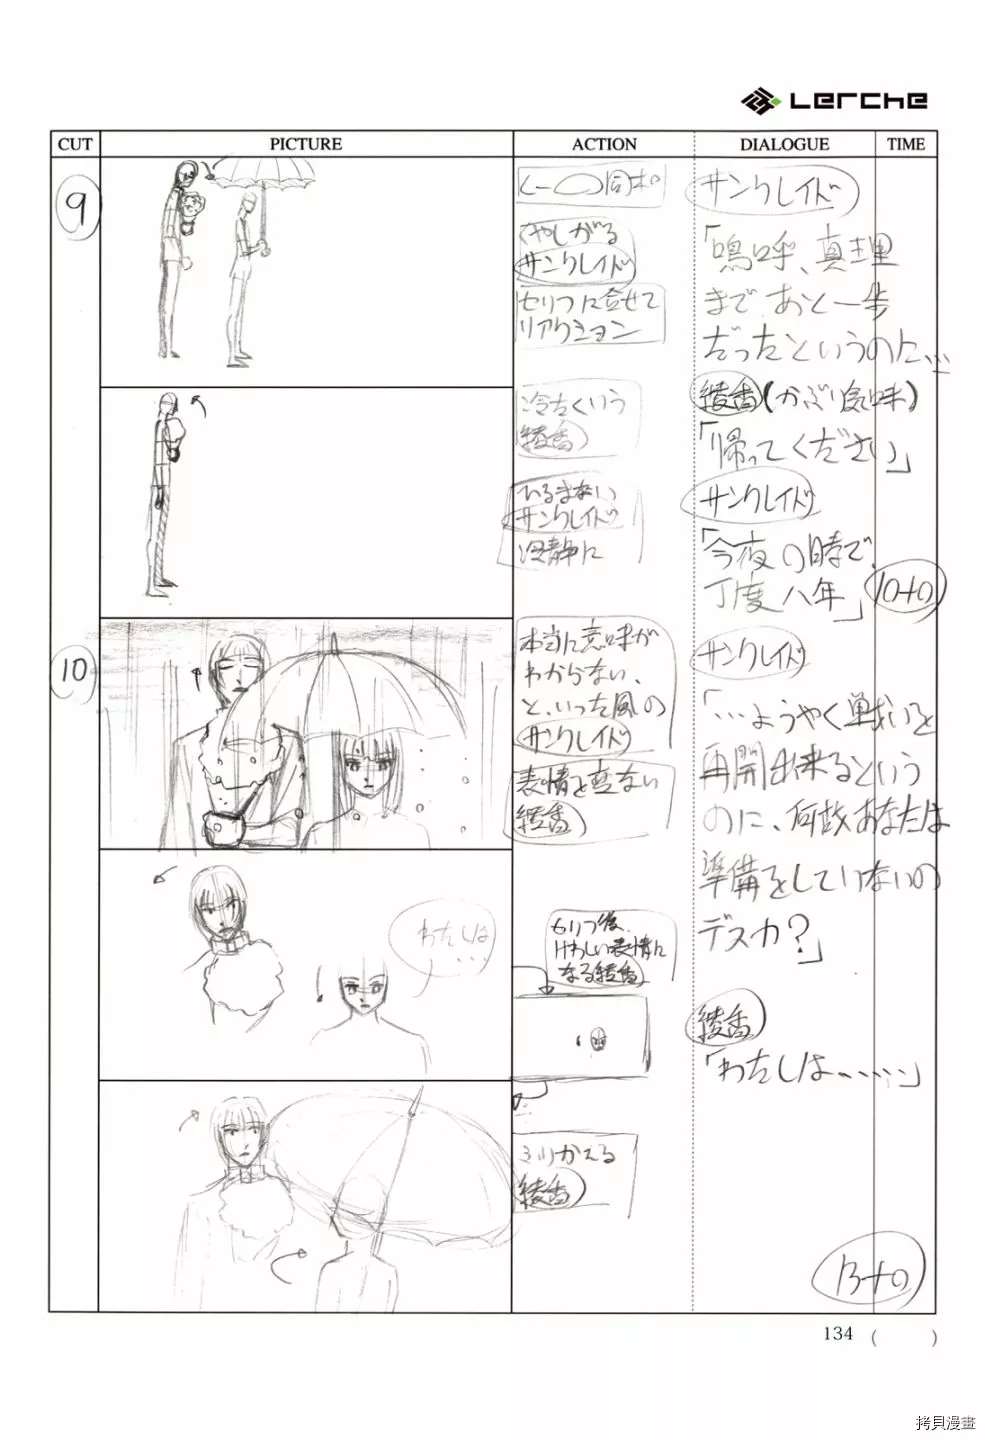 Lerche
CUT
PICTURE
ACTION
DIALOGUE
TIME
9
くやしがる
サンクレイド
セリフに合せて
リアクション
サンクレイド
「嗚呼、真理
まであと一歩
だったというのに…
冷たくいう
綾香
綾香(かぶり気味)
「帰ってください」
ひるまない
サンクレイド
冷静に
サンクレイド
「今夜の時で、
丁度八年」
10+0
10
本当に意味が
わからない、
と、いった風の
サンクレイド
表情を変ない
綾香
サンクレイド
「…ようやく戦いを
再開出来るという
のに、何故あなたは
準備をしていないの
デスカ?」
わたしは
・・・
セリフ後、
けわしい表情に
なる綾香
綾香
「わたしは、、、…」
ふりかえる
綾香
13+0
134 ( )
拷貝漫畫